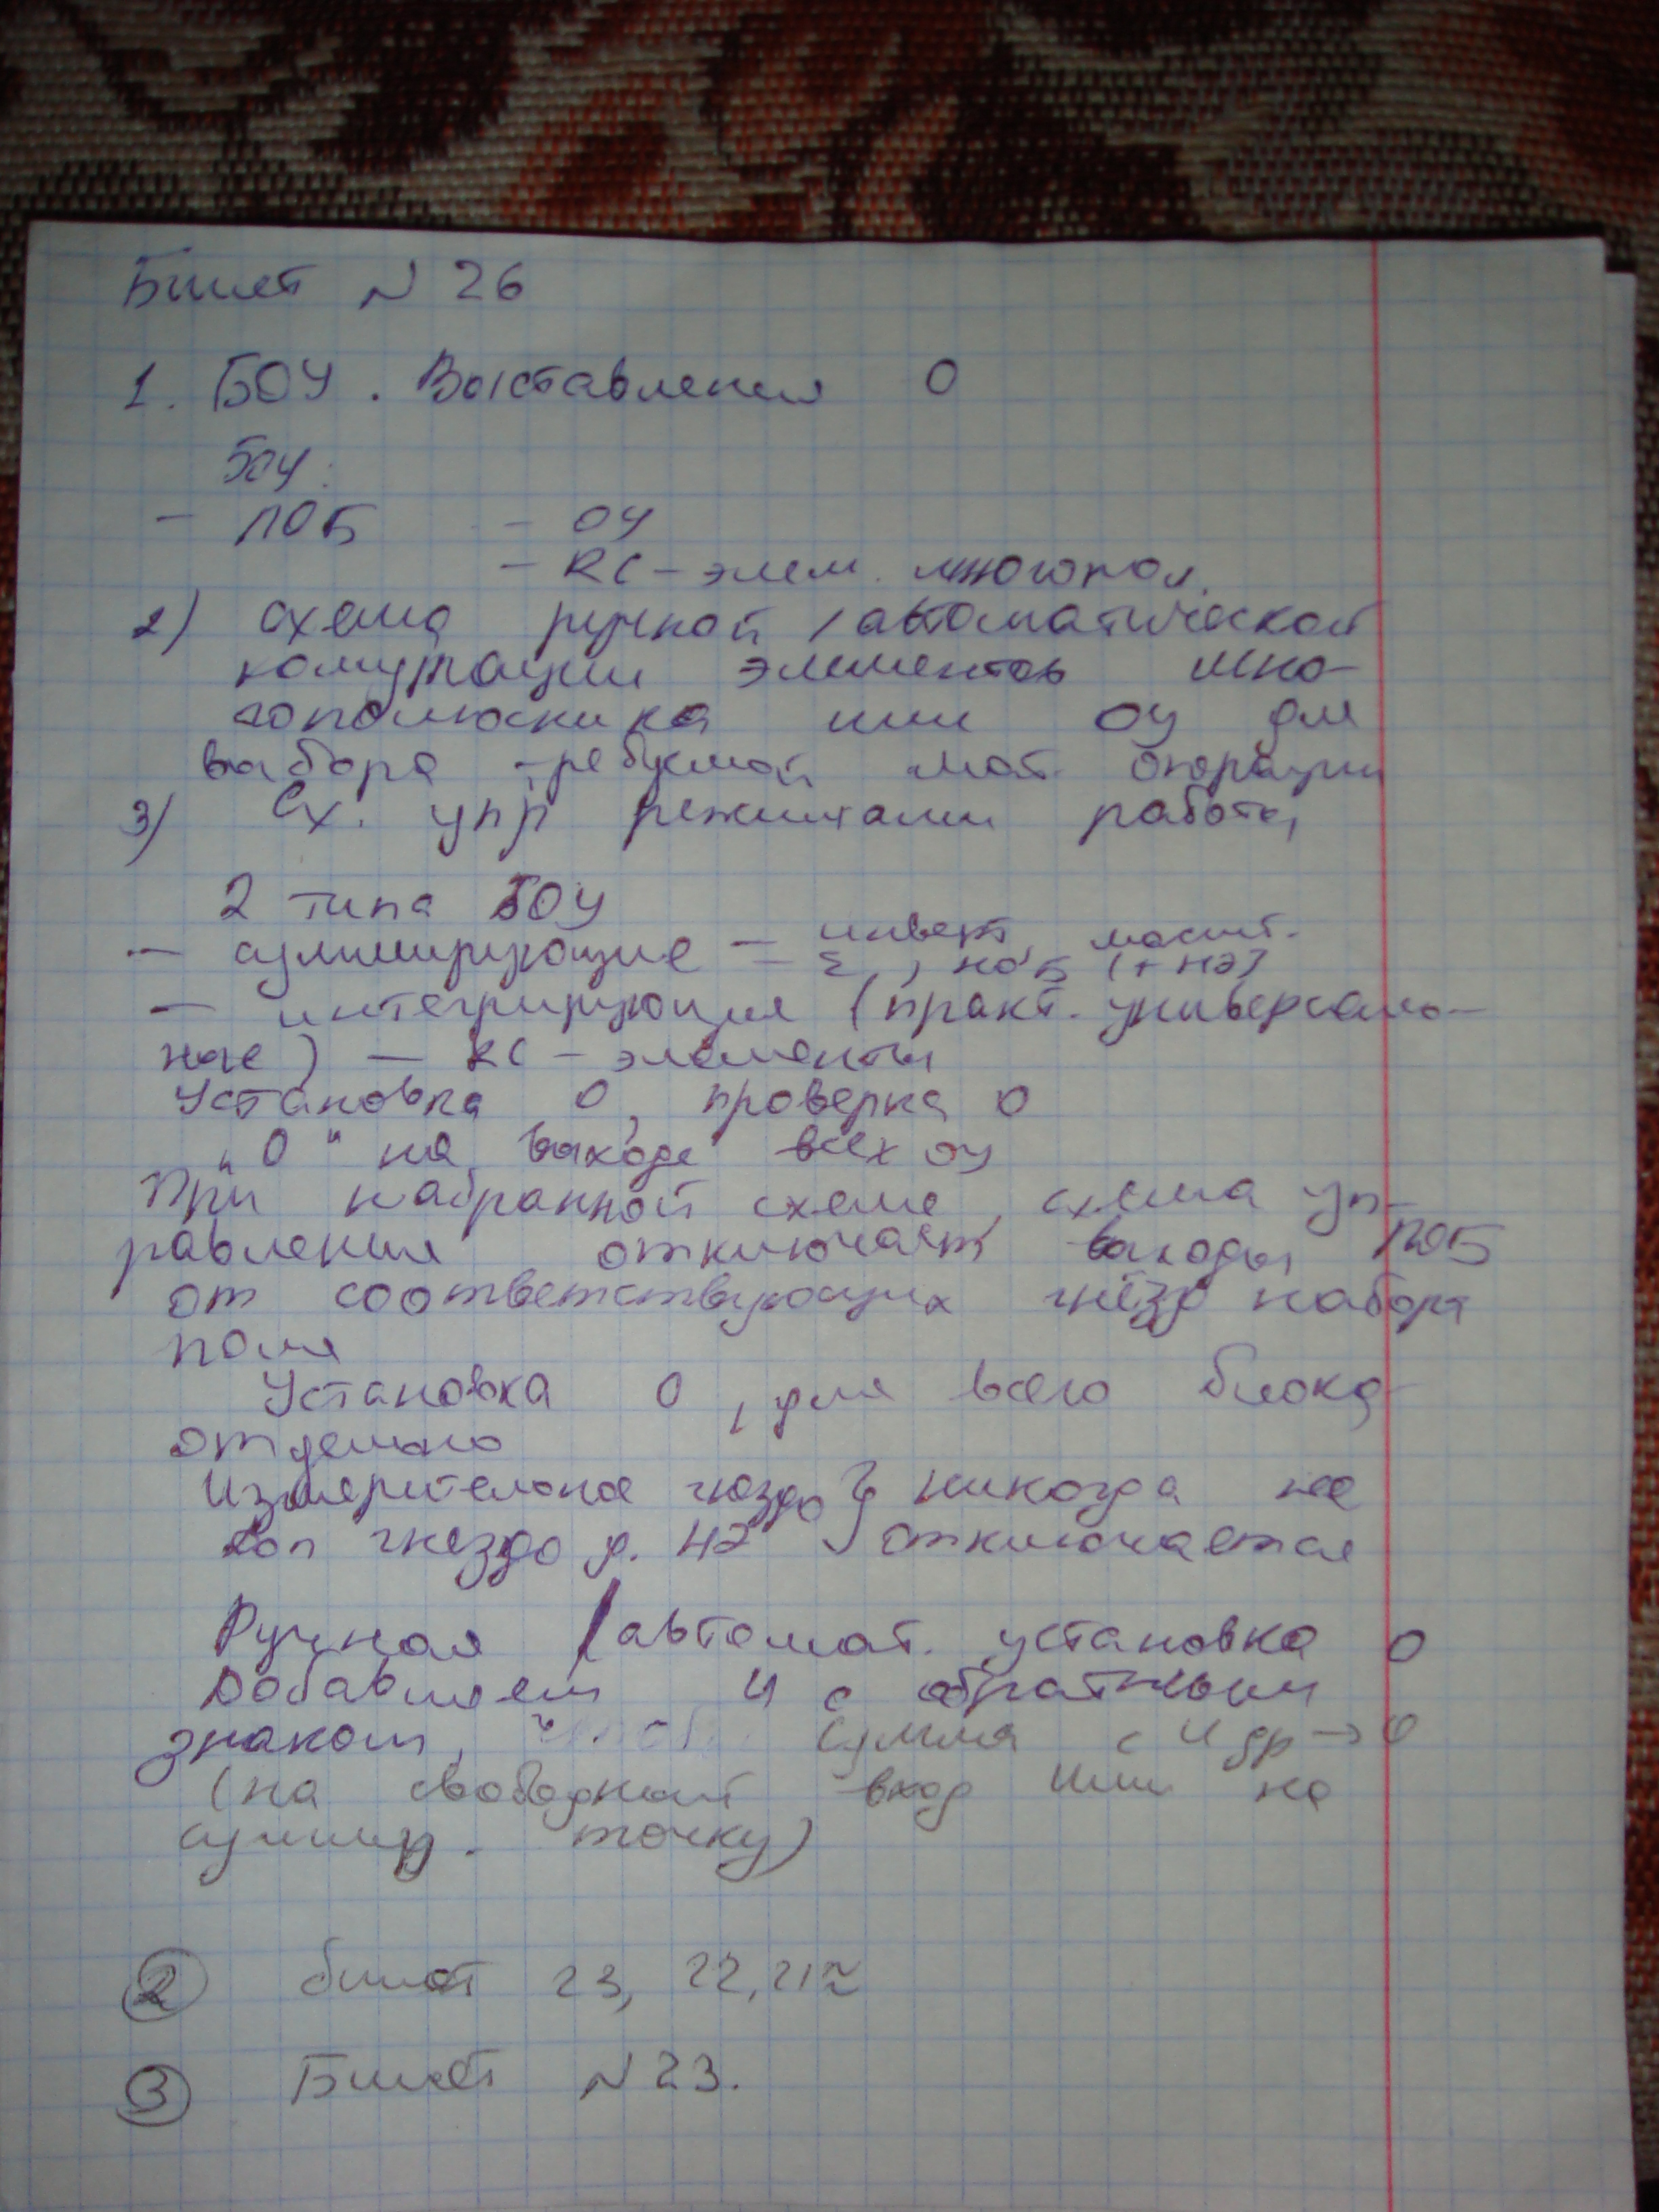 Билет N 26
1. БОУ. Выставления 0
БОУ:
- ЛОБ - ОУ
- RC-элем. многопол.
2) схема ручной / автоматической
комутации элементов мно-
гополюсника или ОУ для
выбора требуемой мат. операции
3) Сх. упр режимами работы
2 типа БОУ
- суммирующие - инверт, масшт.
- Σ, (+ НЭ)
- интегрирующия (практ. универсаль-
ные) - RC-элементы
Установка 0, проверка 0
"0" на выходе всех ОУ
При набранной схеме, схема уп-
равления отключает выходы ЛОБ
от соответствующих гнёзд наборт
поля
Установка 0, для всего блока
отдельно
Измерительное гнездо } никогда не
гнездо } отключается
Ручная / автомат. установка 0
Добавляем U с обратным
знаком, чтоб сумма с U др → 0
(на свободный вход или на
суммир. точку)
2 билет 23, 22, 21 ≈
3 Билет N 23.